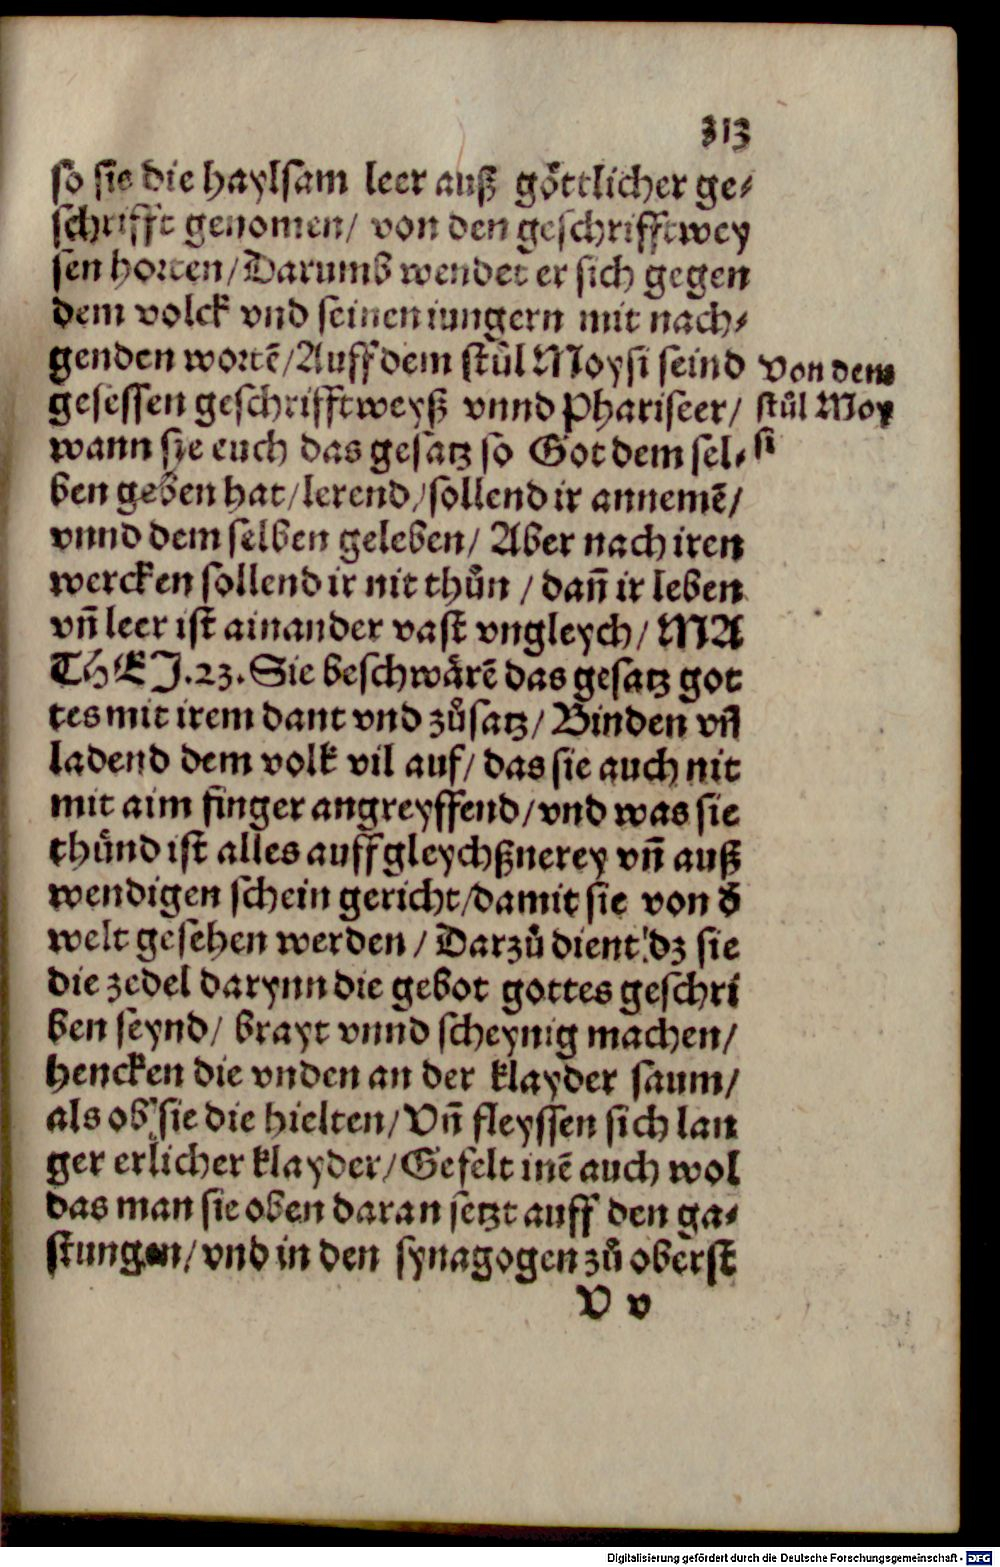 313
so sie die haylsam leer auß göttlicher ge⸗
schrifft genomen/ von den geschrifftwey
sen horten/ Darumb wendet er sich gegen
dem volck vnd seinen iungern mit nach⸗
genden wortē/ Auff dem stůl Moysi seind
gesessen geschrifftweyß vnnd Phariseer/
wann sie euch das gesatz so Got dem sel⸗
ben geben hat/ lerend/ sollend ir annemē/
vnnd dem selben geleben/ Aber nach iren
wercken sollend ir nit thůn / dañ ir leben
vñ leer ist ainander vast vngleych/ MA
THEJ.23. Sie beschwärē das gesatz got
tes mit irem dant vnd zůsatz/ Binden vñ
ladend dem volk vil auf/ das sie auch nit
mit aim finger angreyffend/ vnd was sie
thůnd ist alles auff gleychßnerey vñ auß
wendigen schein gericht/ damit sie von d̄
welt gesehen werden / Darzů dient/ dz sie
die zedel darynn die gebot gottes geschri
ben seynd/ brayt vnnd scheynig machen/
hencken die vnden an der klayder saum/
als ob sie die hielten/ Vñ fleyssen sich lan
ger erlicher klayder/ Gefelt inē auch wol
das man sie oben daran setzt auff den ga⸗
stungen/ vnd in den synagogen zů oberst
V v
Von dem
stůl Moy
si
Digitalisierung gefördert durch die Deutsche Forschungsgemeinschaft - DFG